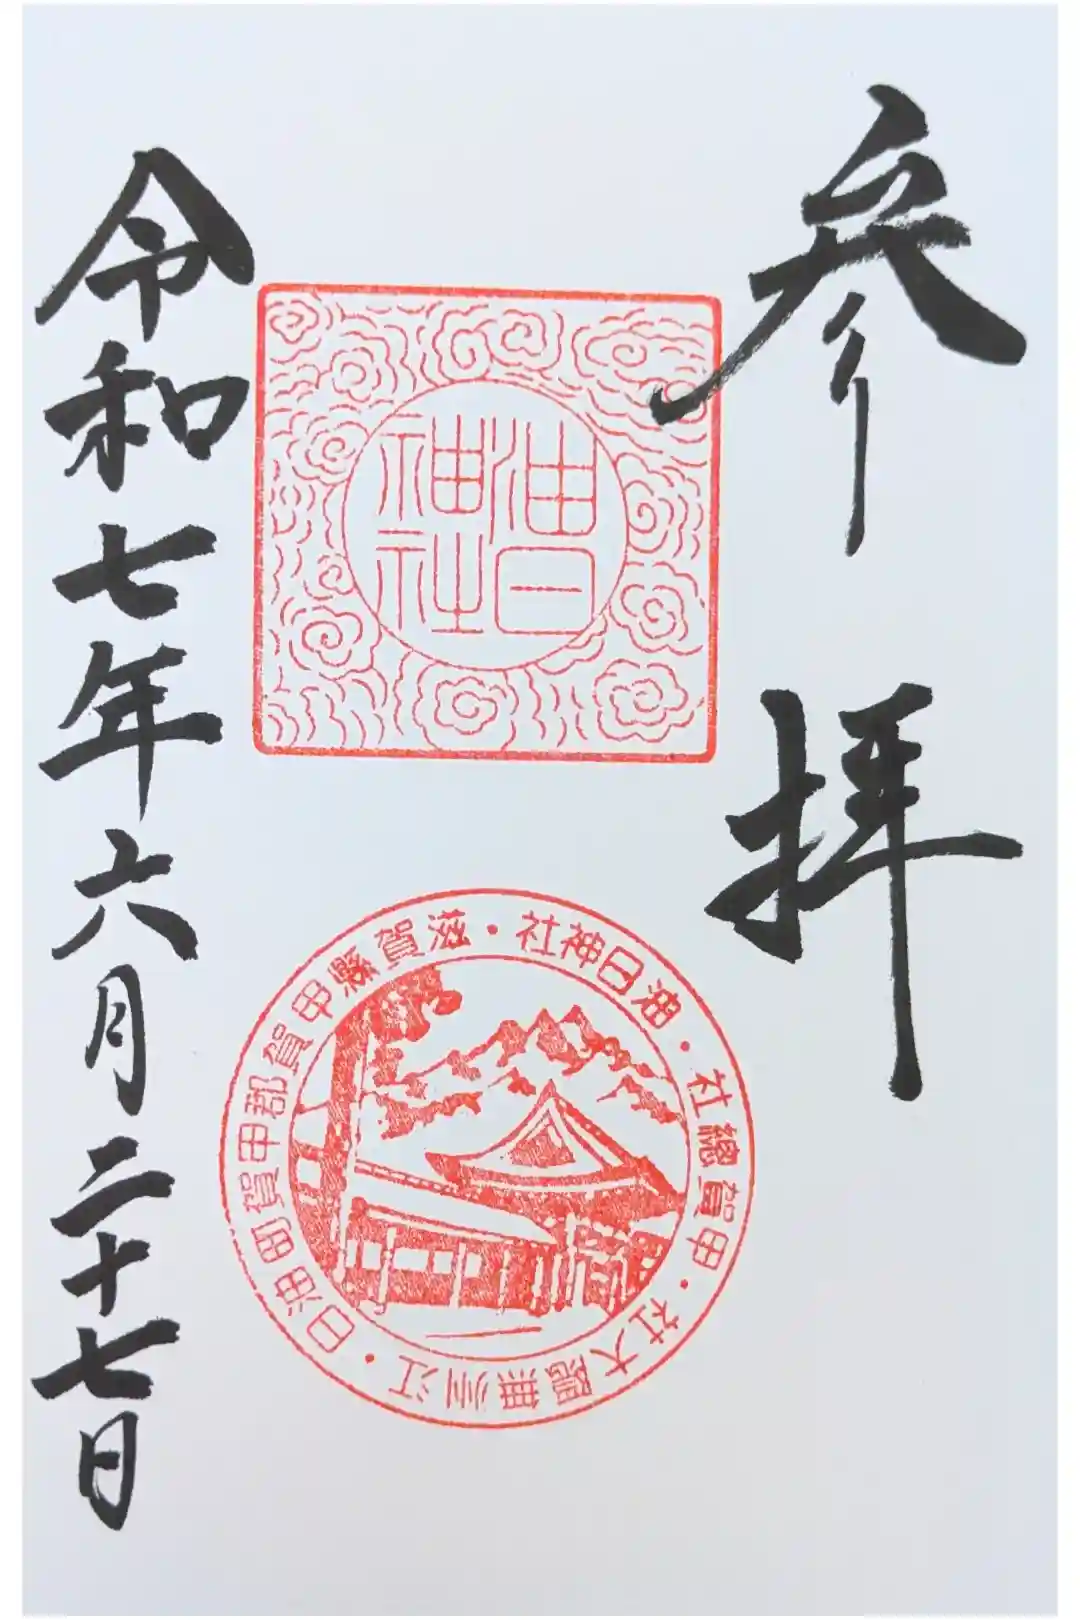 参拝
油日
神社
滋賀縣甲賀郡甲賀町油日・江州無隈大社・甲賀總社・油日神社・
令和七年六月二十七日